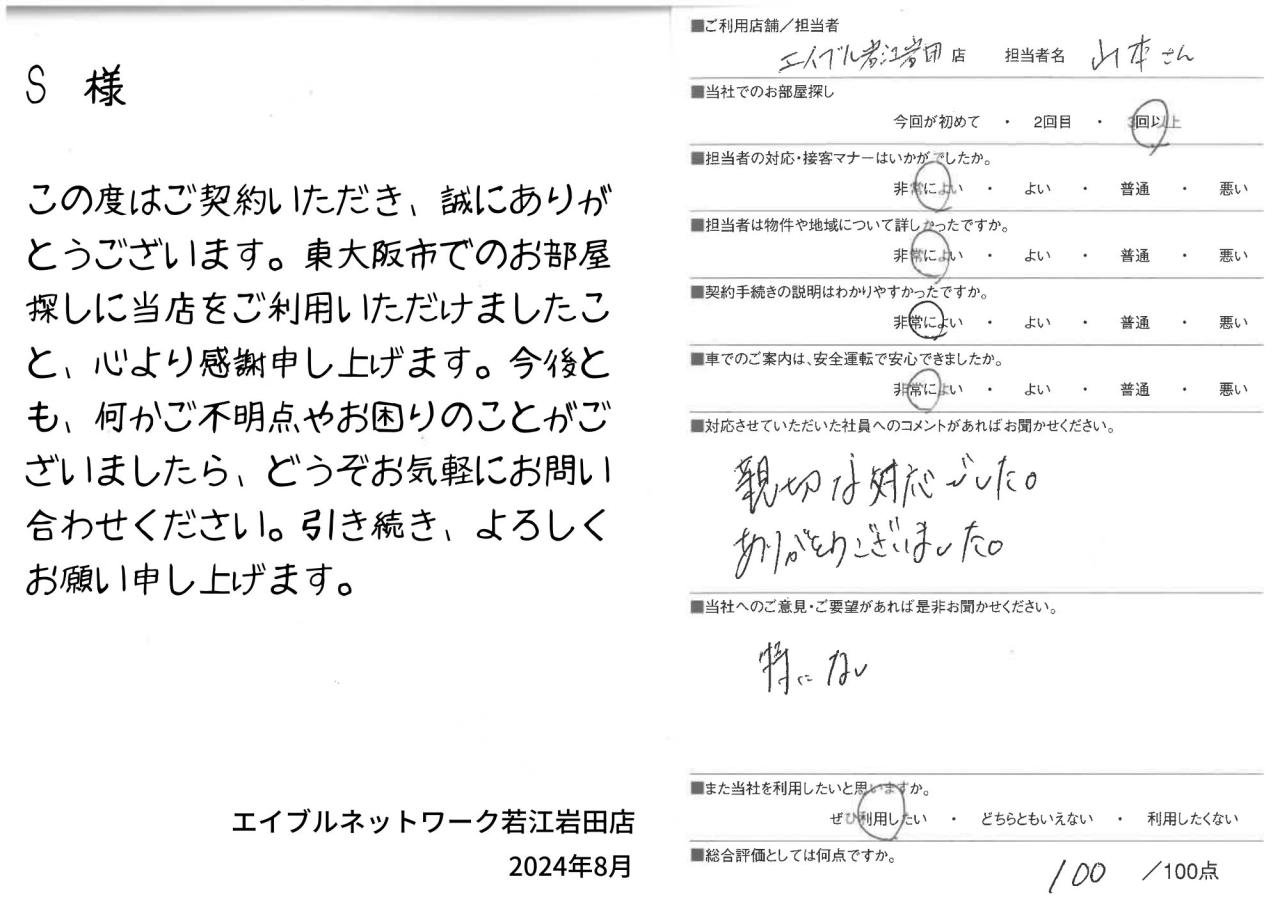 S 様
この度はご契約いただき、誠にありが
とうございます。東大阪市でのお部屋
探しに当店をご利用いただけましたこ
と、心より感謝申し上げます。今後と
も、何かご不明点やお困りのことがご
ざいましたら、どうぞお気軽にお問い
合わせください。引き続き、よろしく
お願い申し上げます。
エイブルネットワーク若江岩田店
2024年8月
■ご利用店舗／担当者
エイブル若江岩田 店 担当者名 山本さん
■当社でのお部屋探し
今回が初めて ・ 2回目 ・ 3回以上
■担当者の対応・接客マナーはいかがでしたか。
非常によい ・ よい ・ 普通 ・ 悪い
■担当者は物件や地域について詳しかったですか。
非常によい ・ よい ・ 普通 ・ 悪い
■契約手続きの説明はわかりやすかったですか。
非常によい ・ よい ・ 普通 ・ 悪い
■車でのご案内は、安全運転で安心できましたか。
非常によい ・ よい ・ 普通 ・ 悪い
■対応させていただいた社員へのコメントがあればお聞かせください。
親切な対応でした。
ありがとうございました。
■当社へのご意見・ご要望があれば是非お聞かせください。
特にない
■また当社を利用したいと思いますか。
ぜひ利用したい ・ どちらともいえない ・ 利用したくない
■総合評価としては何点ですか。
100 ／100点